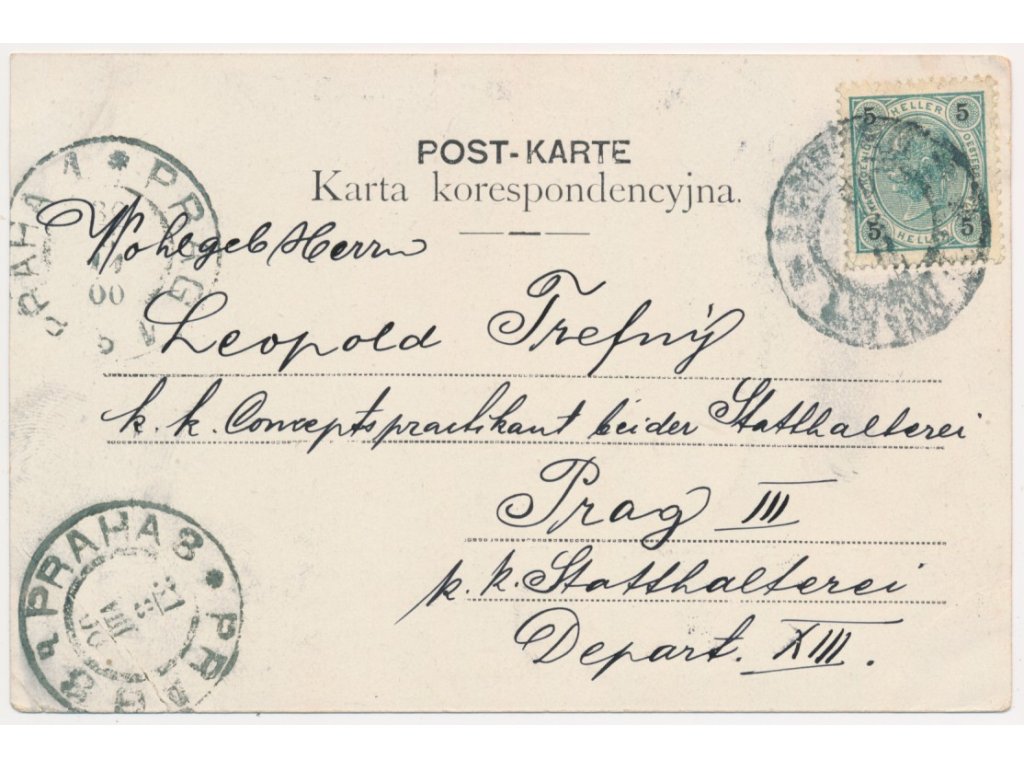 POST-KARTE
Karta korespondencyjna.
Wohlgeb Herrn
Leopold Trefný
k. k. Conceptspractikant bei der Statthalterei
Prag III
k. k. Statthalterei
Depart. XIII.
5 HELLER 5
5 HELLER 5
PRAHA 1 * PRAG
00
PRAHA 3 * PRAG 3
VIII
00